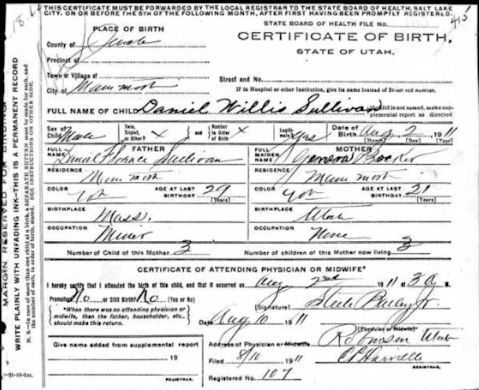 THIS CERTIFICATE MUST BE FORWARDED BY THE LOCAL REGISTRAR TO THE STATE BOARD OF HEALTH, SALT LAKE
CITY, ON OR BEFORE THE 5TH OF THE FOLLOWING MONTH, AFTER FIRST HAVING BEEN PROMPTLY REGISTERED.
STATE BOARD OF HEALTH FILE No.
415
PLACE OF BIRTH
CERTIFICATE OF BIRTH,
STATE OF UTAH.
County of Juab
Precinct of
Town or Village of
City of Mammoth
Street and No.
If in Hospital or other Institution, give its name instead of Street and number.
FULL NAME OF CHILD Daniel Willis Sullivan
Sex of Child Male
Twin, Triplet or Other? X
Number in Order of Birth X
Legitimate? Yes
Date of Birth Aug 2 1911
(Month) (Day) (Year)
FATHER
FULL NAME Sullivan
MOTHER
FULL MAIDEN NAME
RESIDENCE Mammoth
RESIDENCE Mammoth
COLOR
AGE AT LAST BIRTHDAY 29 (Years)
COLOR
AGE AT LAST BIRTHDAY 21 (Years)
BIRTHPLACE Mass.
BIRTHPLACE Utah
OCCUPATION Miner
OCCUPATION None
Number of Child of this Mother 3
Number of children of this Mother now living 3
CERTIFICATE OF ATTENDING PHYSICIAN OR MIDWIFE*
I hereby certify that I attended the birth of this child, and that it occurred on Aug 2nd 1911 at 3 a. M.
Premature? No or Still Birth? No (Yes or No)
(Signature) Steele Bailey Jr.
*When there was no attending physician or
midwife, then the father, householder, etc.
should make this return.
Date Aug 10 1911
(Physician or Midwife)
Give name added from supplemental report
19
Address of Physician or Midwife Robinson Utah
Filed 8/10 1911
REGISTRAR.
Registered No. 107
REGISTRAR.
MARGIN RESERVED FOR BINDING
WRITE PLAINLY WITH UNFADING INK—THIS IS A PERMANENT RECORD